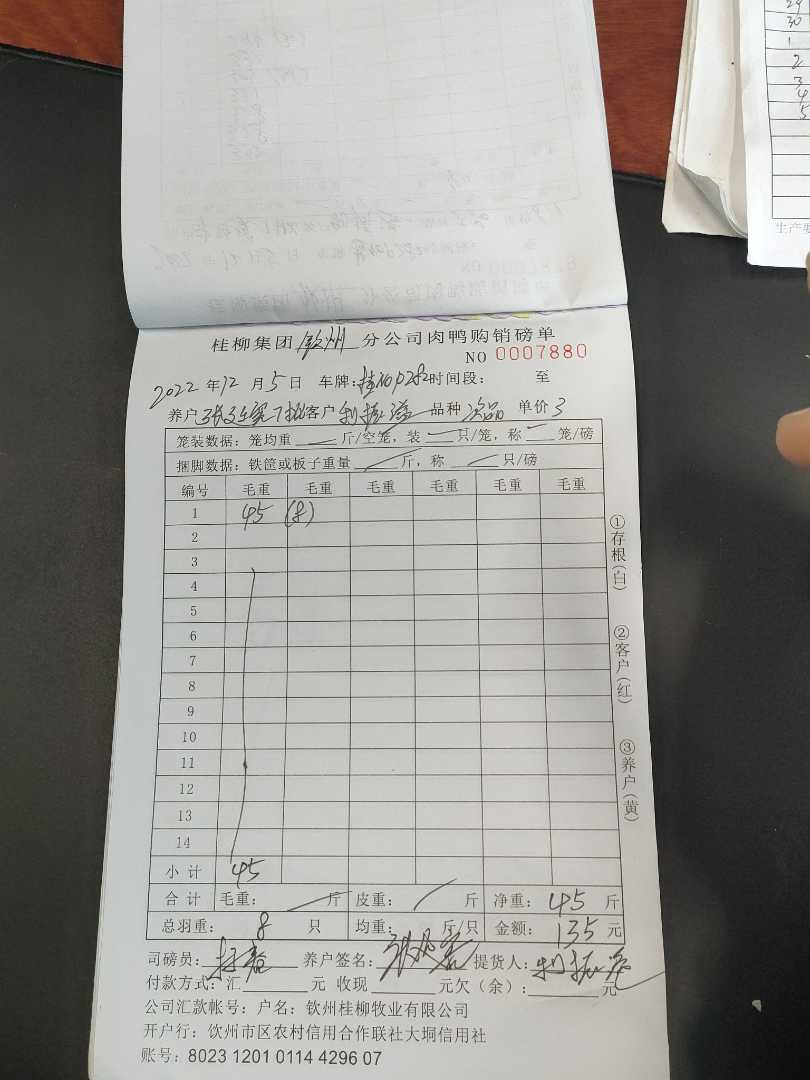 桂柳集团 钦州 分公司肉鸭购销磅单
NO 0007880
2022 年 12 月 5 日 车牌: 时间段: 至
养户 客户 品种 次品 单价 3
笼装数据: 笼均重 斤/空笼, 装 只/笼, 称 笼/磅
捆脚数据: 铁筐或板子重量 斤, 称 只/磅
编号 毛重 毛重 毛重 毛重 毛重 毛重
1 45 (8)
2
3
4
5
6
7
8
9
10
11
12
13
14
小计 45
合计 毛重: 斤 皮重: 斤 净重: 45 斤
总羽重: 8 只 均重: 斤/只 金额: 135 元
司磅员: 养户签名: 提货人:
付款方式: 汇 元 收现 元欠(余): 元
公司汇款帐号: 户名: 钦州桂柳牧业有限公司
开户行: 钦州市区农村信用合作联社大垌信用社
账号: 8023 1201 0114 4296 07
①存根(白)
②客户(红)
③养户(黄)
29
30
1
2
3
4
5
生产